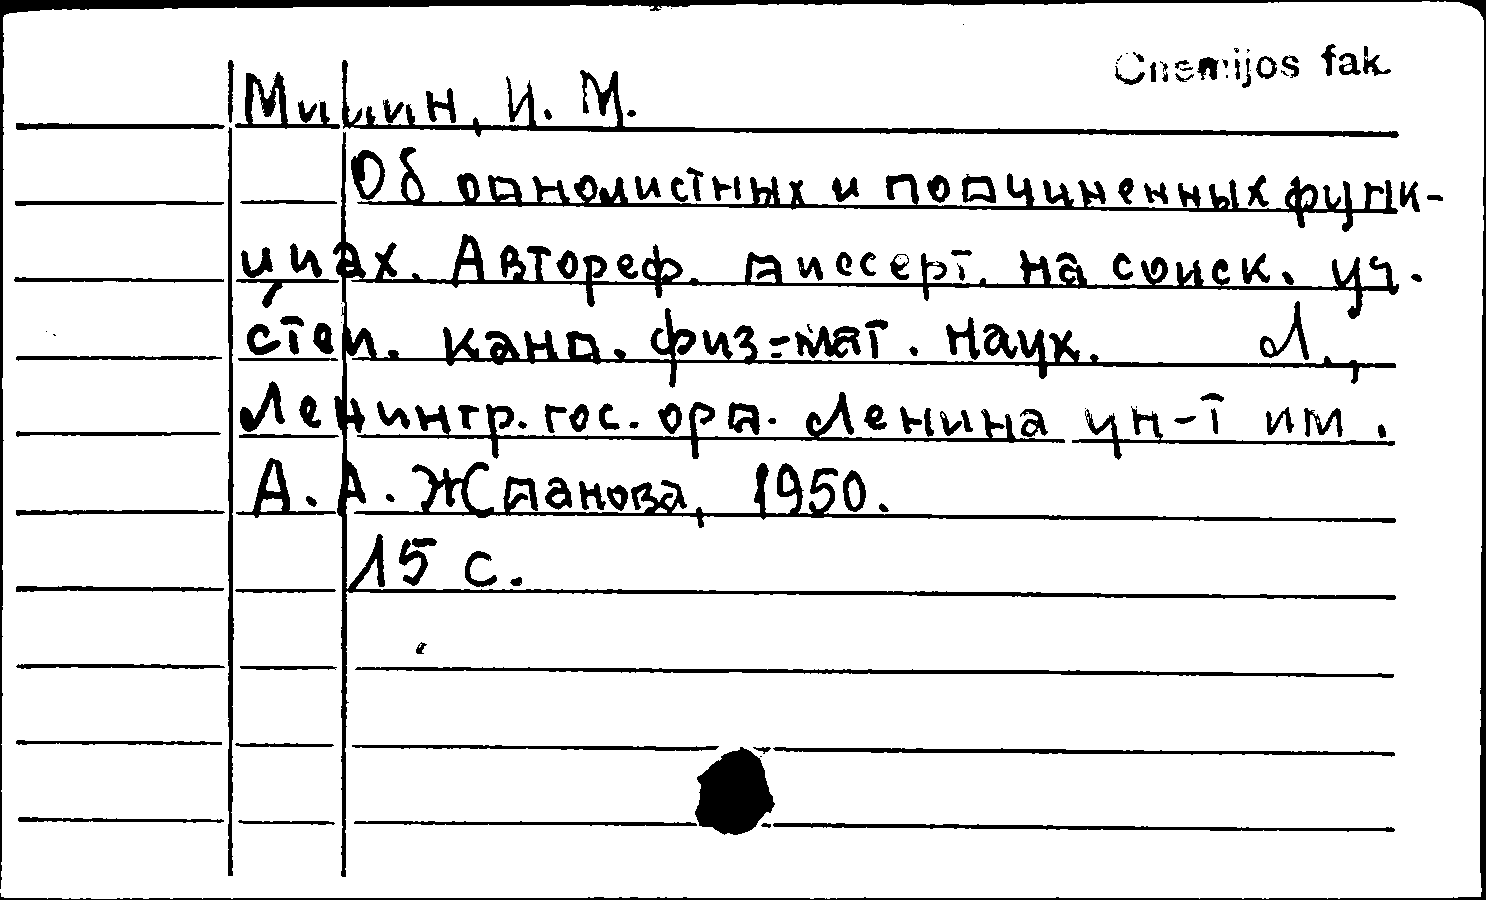 Chemijos fak.
Милин, И. М.
Об однолистных и подчиненных функ-
циях. Автореф. диссерт. на соиск. уч.
степ. канд. физ=мат. наук. Л.,
Ленингр. гос. орд. Ленина ун-т им.
А. А. Жданова, 1950.
15 с.